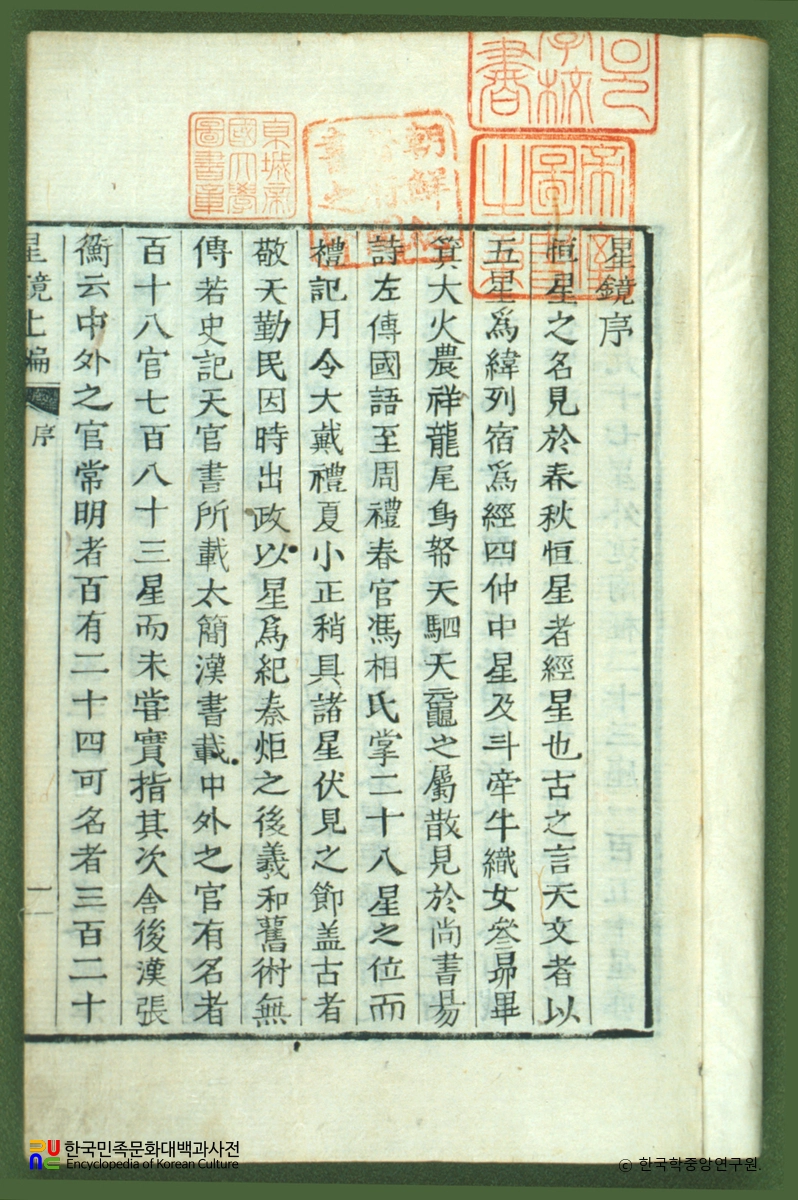 帝室圖書之章
京城帝國大學圖書章
星鏡序
恒星之名見於春秋恒星者經星也古之言天文者以
五星爲緯列宿爲經四仲中星及斗牽牛織女參昴畢
箕大火農祥龍尾鳥帑天駟天黿之屬散見於尚書易
詩左傳國語至周禮春官馮相氏掌二十八星之位而
禮記月令大戴禮夏小正稍具諸星伏見之節盖古者
敬天勤民因時出政以星爲紀秦炬之後羲和舊術無
傳若史記天官書所載太簡漢書載中外之官有名者
百十八官七百八十三星而未甞實指其次舍後漢張
衡云中外之官常明者百有二十四可名者三百二十
星鏡上編 序 一
한국민족문화대백과사전
Encyclopedia of Korean Culture
© 한국학중앙연구원.